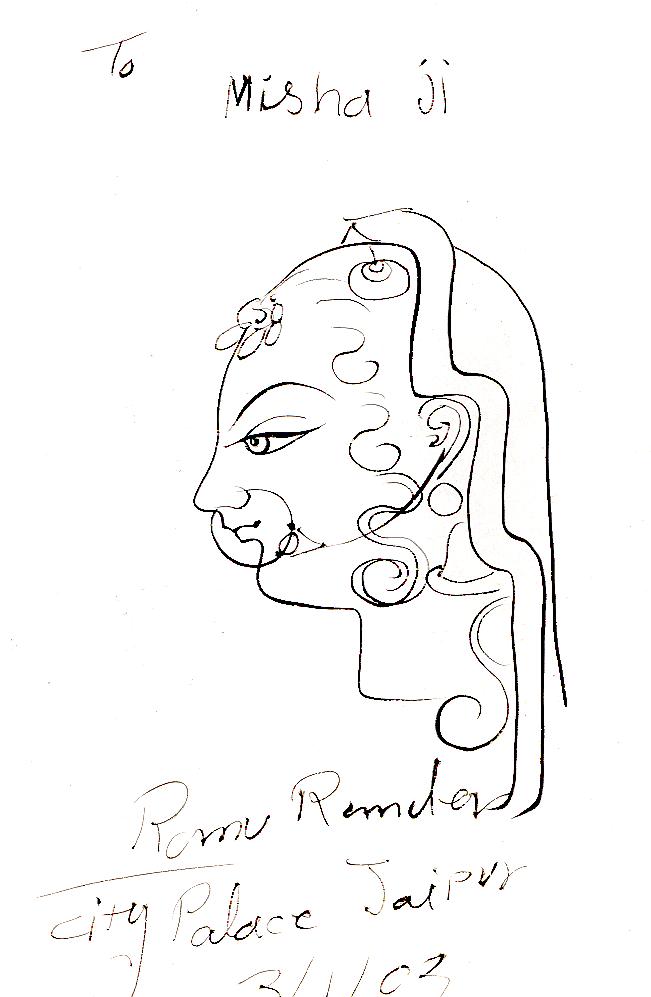 To
Misha ji
Ramu Ramdev
City Palace Jaipur
3/1/03